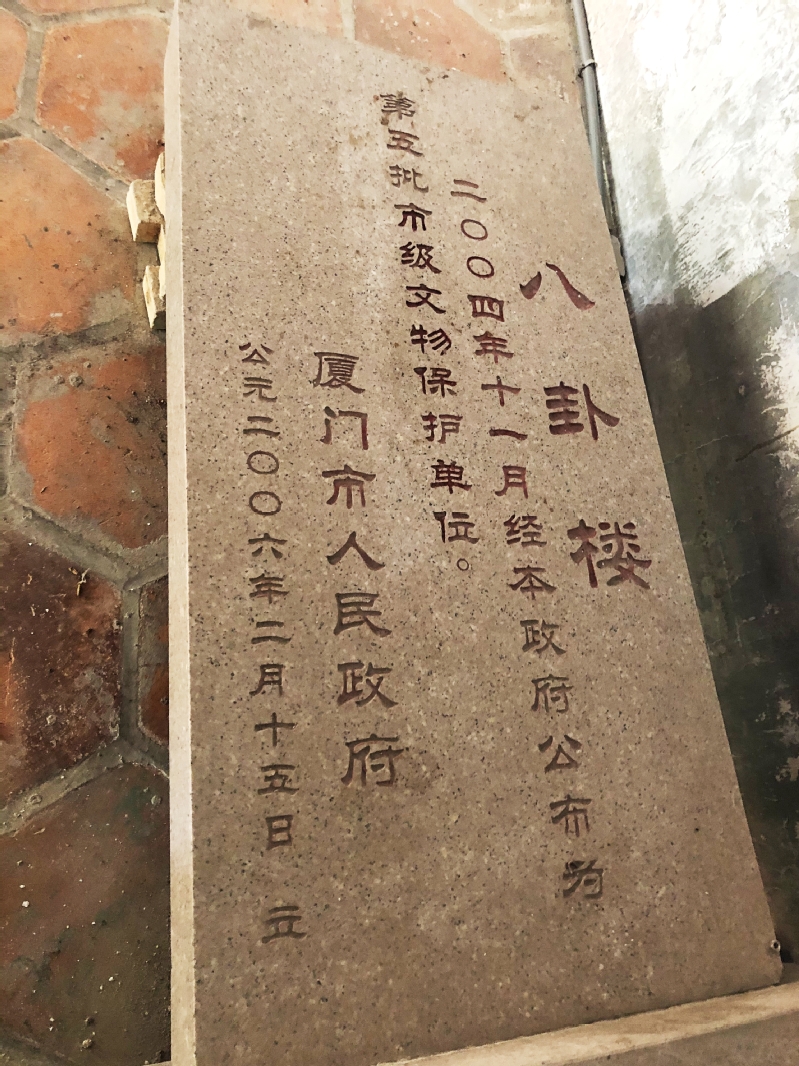 八卦楼
二〇〇四年十一月经本政府公布为
第五批市级文物保护单位。
厦门市人民政府
公元二〇〇六年二月十五日 立